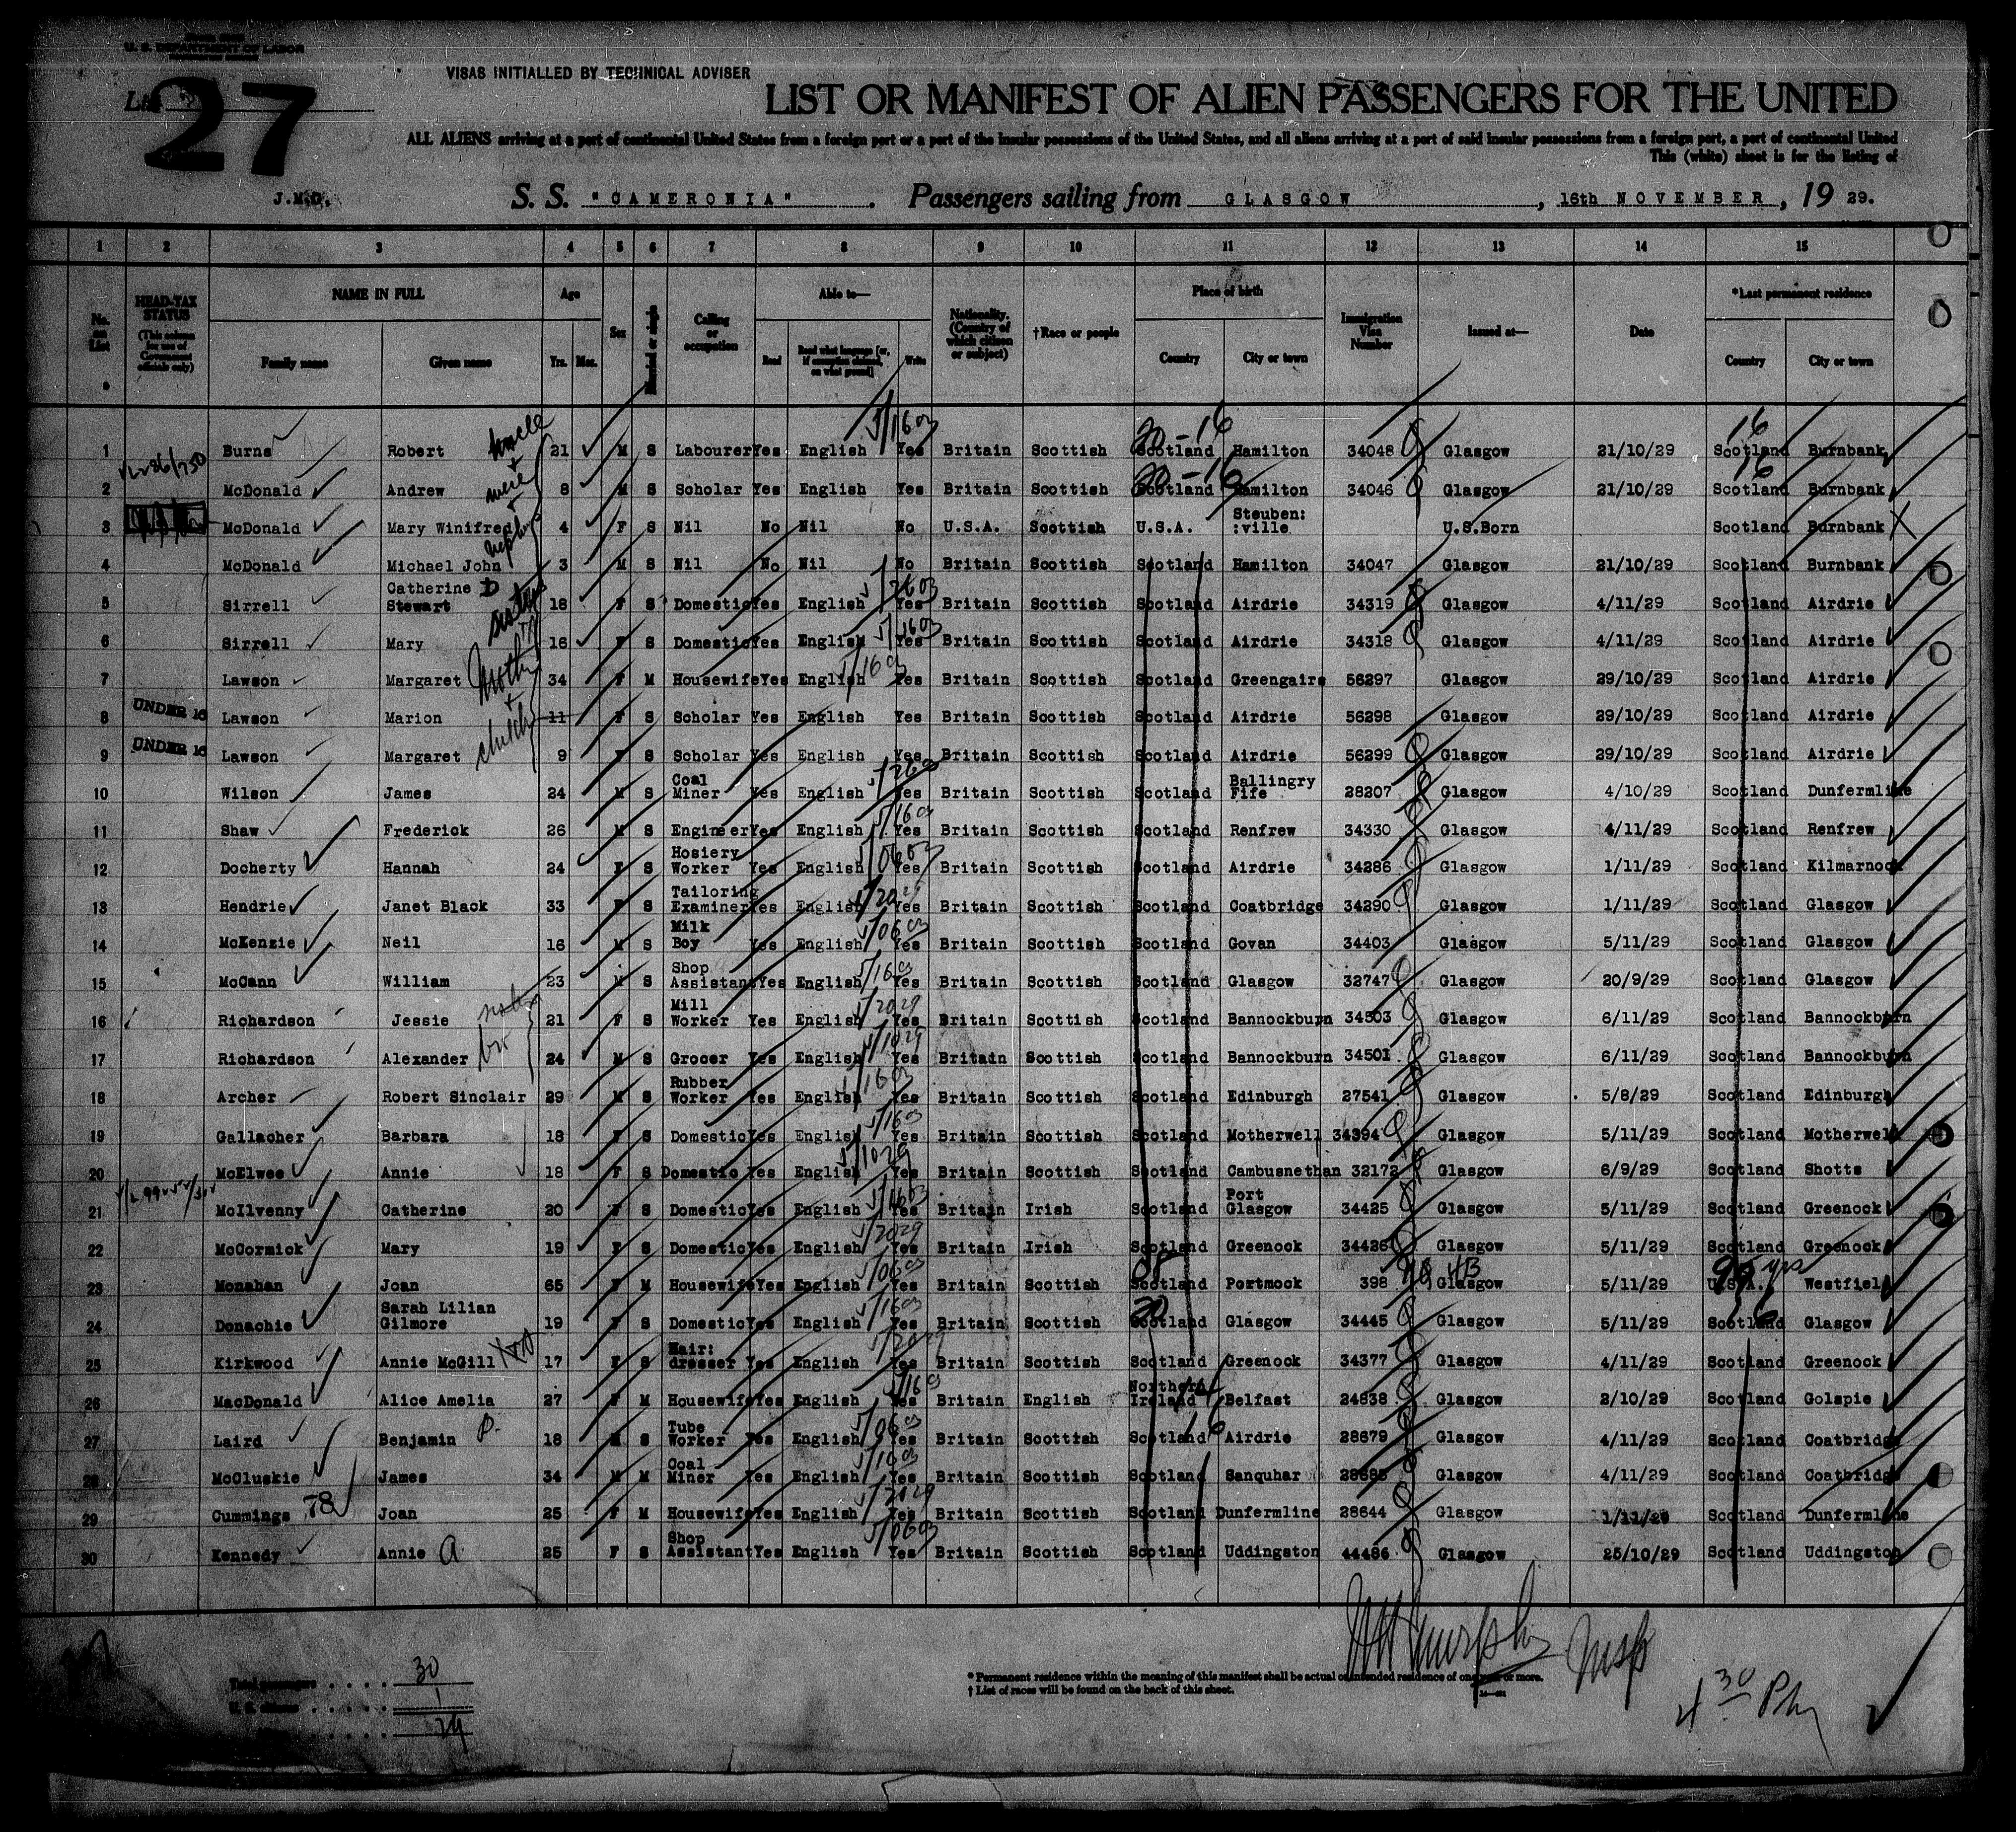 U. S. DEPARTMENT OF LABOR
VISAS INITIALLED BY TECHNICAL ADVISER
27
LIST OR MANIFEST OF ALIEN PASSENGERS FOR THE UNITED
ALL ALIENS arriving at a port of continental United States from a foreign port or a port of the insular possessions of the United States, and all aliens arriving at a port of said insular possessions from a foreign port, a port of continental United
This (white) sheet is for the listing of
J.M.D. S. S. "CAMERONIA". Passengers sailing from GLASGOW, 16th NOVEMBER, 19 29.
1 2 3 4 5 6 7 8 9 10 11 12 13 14 15
No. on List HEAD-TAX STATUS (This column for use of Government officials only) NAME IN FULL Age Sex Married or single Calling or occupation Able to— Nationality. (Country of which citizen or subject) †Race or people Place of birth Immigration Visa Number Issued at— Date *Last permanent residence
Family name Given name Yrs. Mos. Read Read what language [or, if exemption claimed, on what ground] Write Country City or town Country City or town
1 Burns Robert uncle 21 M S Labourer Yes English Yes Britain Scottish Scotland Hamilton 34048 Glasgow 21/10/29 Scotland Burnbank
2 McDonald Andrew niece 8 M S Scholar Yes English Yes Britain Scottish Scotland Hamilton 34046 Glasgow 21/10/29 Scotland Burnbank
3 McDonald Mary Winifred 4 F S Nil No Nil No U.S.A. Scottish U.S.A. Steuben: :ville U.S.Born Scotland Burnbank
4 McDonald Michael John 3 M S Nil No Nil No Britain Scottish Scotland Hamilton 34047 Glasgow 21/10/29 Scotland Burnbank
5 Sirrell Catherine D Stewart sisters 18 F S Domestic Yes English Yes Britain Scottish Scotland Airdrie 34319 Glasgow 4/11/29 Scotland Airdrie
6 Sirrell Mary 16 F S Domestic Yes English Yes Britain Scottish Scotland Airdrie 34318 Glasgow 4/11/29 Scotland Airdrie
7 Lawson Margaret Mother 34 F M Housewife Yes English Yes Britain Scottish Scotland Greengairs 56297 Glasgow 29/10/29 Scotland Airdrie
8 UNDER 16 Lawson Marion 11 F S Scholar Yes English Yes Britain Scottish Scotland Airdrie 56298 Glasgow 29/10/29 Scotland Airdrie
9 UNDER 16 Lawson Margaret 9 F S Scholar Yes English Yes Britain Scottish Scotland Airdrie 56299 Glasgow 29/10/29 Scotland Airdrie
10 Wilson James 24 M S Coal Miner Yes English Yes Britain Scottish Scotland Ballingry Fife 28207 Glasgow 4/10/29 Scotland Dunfermline
11 Shaw Frederick 26 M S Engineer Yes English Yes Britain Scottish Scotland Renfrew 34330 Glasgow 4/11/29 Scotland Renfrew
12 Docherty Hannah 24 F S Hosiery Worker Yes English Yes Britain Scottish Scotland Airdrie 34286 Glasgow 1/11/29 Scotland Kilmarnock
13 Hendrie Janet Black 33 F S Tailoring Examiner Yes English Yes Britain Scottish Scotland Coatbridge 34290 Glasgow 1/11/29 Scotland Glasgow
14 McKenzie Neil 16 M S Milk Boy Yes English Yes Britain Scottish Scotland Govan 34403 Glasgow 5/11/29 Scotland Glasgow
15 McCann William 23 M S Shop Assistant Yes English Yes Britain Scottish Scotland Glasgow 32747 Glasgow 20/9/29 Scotland Glasgow
16 Richardson Jessie 21 F S Mill Worker Yes English Yes Britain Scottish Scotland Bannockburn 34503 Glasgow 6/11/29 Scotland Bannockburn
17 Richardson Alexander 24 M S Grocer Yes English Yes Britain Scottish Scotland Bannockburn 34501 Glasgow 6/11/29 Scotland Bannockburn
18 Archer Robert Sinclair 29 M S Rubber Worker Yes English Yes Britain Scottish Scotland Edinburgh 27541 Glasgow 5/8/29 Scotland Edinburgh
19 Gallacher Barbara 18 F S Domestic Yes English Yes Britain Scottish Scotland Motherwell 34394 Glasgow 5/11/29 Scotland Motherwell
20 McElwee Annie 18 F S Domestic Yes English Yes Britain Scottish Scotland Cambusnethan 32172 Glasgow 6/9/29 Scotland Shotts
21 McIlvenny Catherine 20 F S Domestic Yes English Yes Britain Irish Scotland Port Glasgow 34425 Glasgow 5/11/29 Scotland Greenock
22 McCormick Mary 19 F S Domestic Yes English Yes Britain Irish Scotland Greenock 34426 Glasgow 5/11/29 Scotland Greenock
23 Monahan Joan 65 F M Housewife Yes English Yes Britain Scottish Scotland Portmock 398 Glasgow 5/11/29 U.S.A. Westfield
24 Donachie Sarah Lilian Gilmore 19 F S Domestic Yes English Yes Britain Scottish Scotland Glasgow 34445 Glasgow 5/11/29 Scotland Glasgow
25 Kirkwood Annie McGill 17 F S Hair: dresser Yes English Yes Britain Scottish Scotland Greenock 34377 Glasgow 4/11/29 Scotland Greenock
26 MacDonald Alice Amelia 27 F M Housewife Yes English Yes Britain English Northern Ireland Belfast 24838 Glasgow 2/10/29 Scotland Golspie
27 Laird Benjamin P. 18 M S Tube Worker Yes English Yes Britain Scottish Scotland Airdrie 28679 Glasgow 4/11/29 Scotland Coatbridge
28 McCluskie James 34 M M Coal Miner Yes English Yes Britain Scottish Scotland Sanquhar 28685 Glasgow 4/11/29 Scotland Coatbridge
29 Cummings 78 Joan 25 F M Housewife Yes English Yes Britain Scottish Scotland Dunfermline 28644 Glasgow 1/11/29 Scotland Dunfermline
30 Kennedy Annie A 25 F S Shop Assistant Yes English Yes Britain Scottish Scotland Uddingston 44486 Glasgow 25/10/29 Scotland Uddingston
Total passengers 30
U. S. citizens 1
29
* Permanent residence within the meaning of this manifest shall be actual or intended residence of one year or more.
† List of races will be found on the back of this sheet.
Murphy Insp
4 30 PM